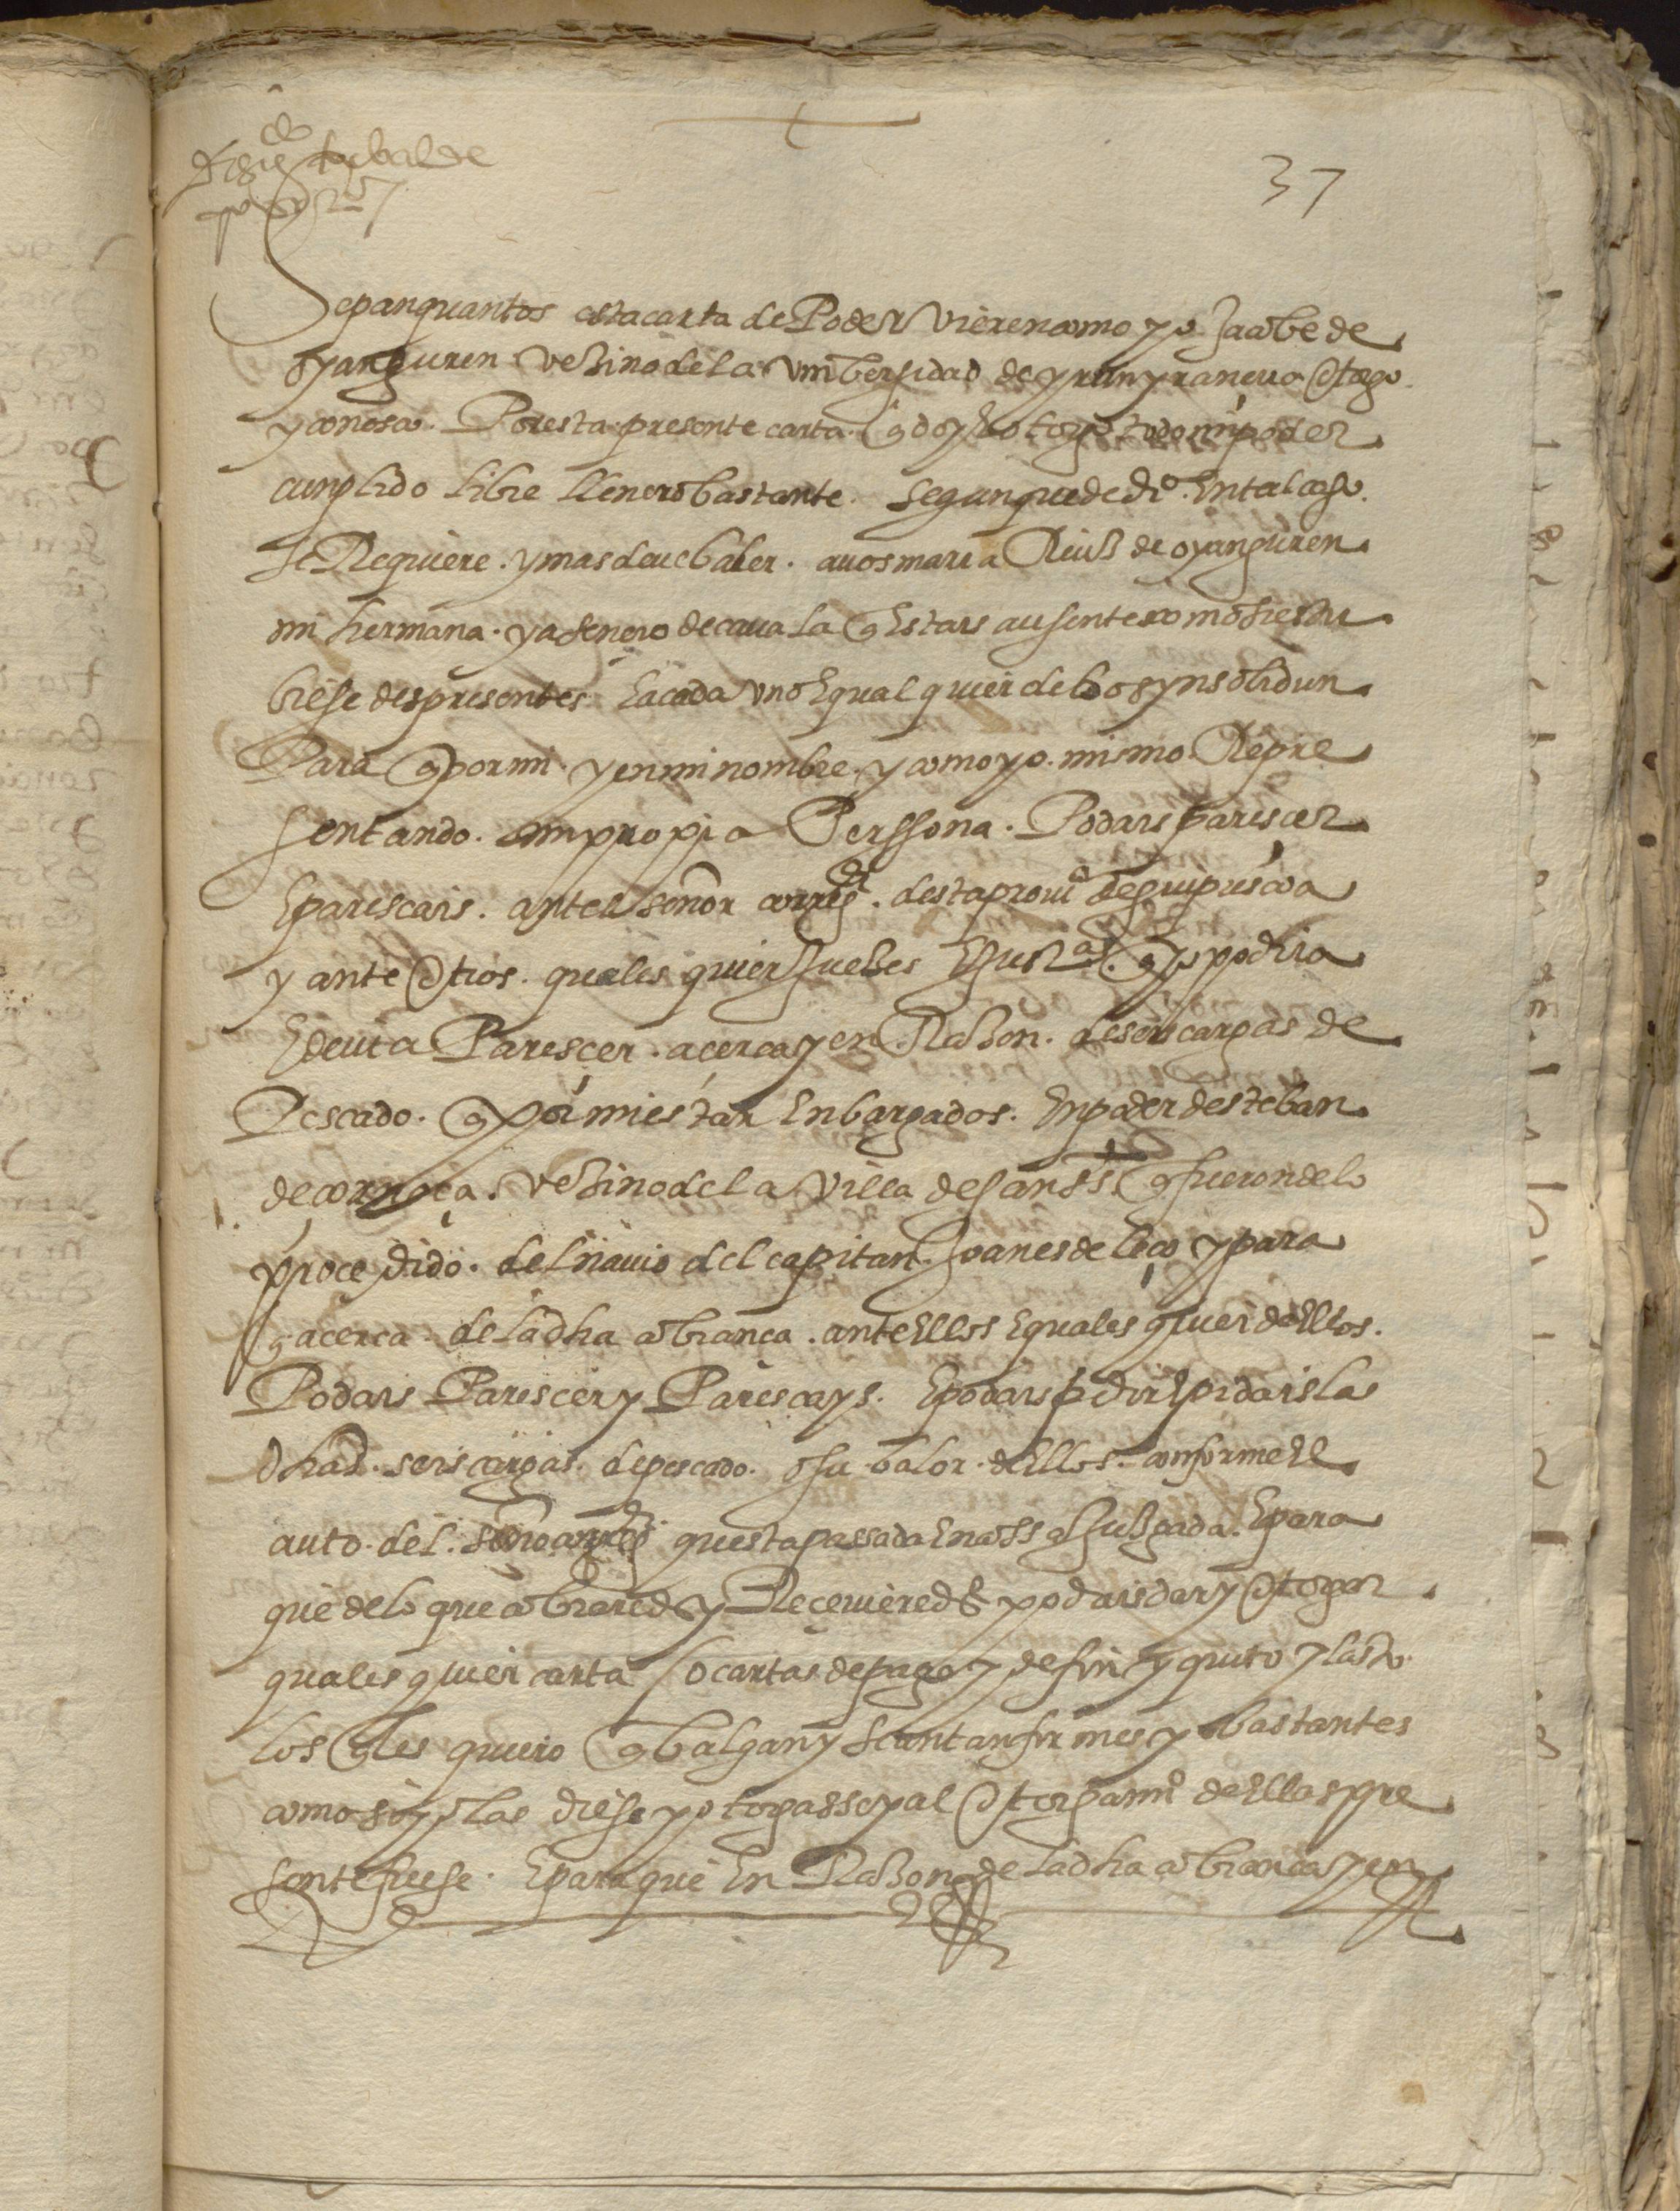 37
Sepan quantos esta carta de Poder vieren como yo Jacobe de
oyanguren vezino de la vnibersidad de yrun yrançu otorgo
y conosco Por esta presente carta q doy E otorgo todo mi poder
cunplido libre llenero bastante segun que de dro En tal caso
se Requiere y mas deue baler a uos maria Ruiz de oyanguren
mi hermana y a de cauala q Estais ausentes como si estu
biesedes presentes E a cada vno E qual quier de bos ynsolidun
Para q por mi y en mi nombre y como yo mismo Repre
sentando mi propia Perssona Podais pariscer
E pariscais ante el señor corregor desta prouia de guipuscoa
y ante otros quales quier Juezes E Justas q yo podria
E deuia Parescer acerca y en Razon de seis cargas de
Pescado q por mi estan Enbargados En poder desteban
de vezino de la villa de san ss q fueron de lo
procedido del nauio del capitan Joanes de leço y para
q acerca de la dha cobrança ante Ellos E quales quier de Ellos
Podais Parescer y Parescays E podais pidir E pidais las
dhas seis cargas de pescado o su balor de Ellos conforme El
auto del señor corregor questa passada En cossa Juzgada E para
que de lo que cobraredes y Receuieredes podais dar y otorgar
quales quier carta o cartas de pago y de fin y quito y lasto
los qles quiero q balgan y sean tan firmes y bastantes
como si yo las diese y otorgasse y al otorgamio de Ellas pre
sente fuese E para que En Razon de la dha cobranca y en